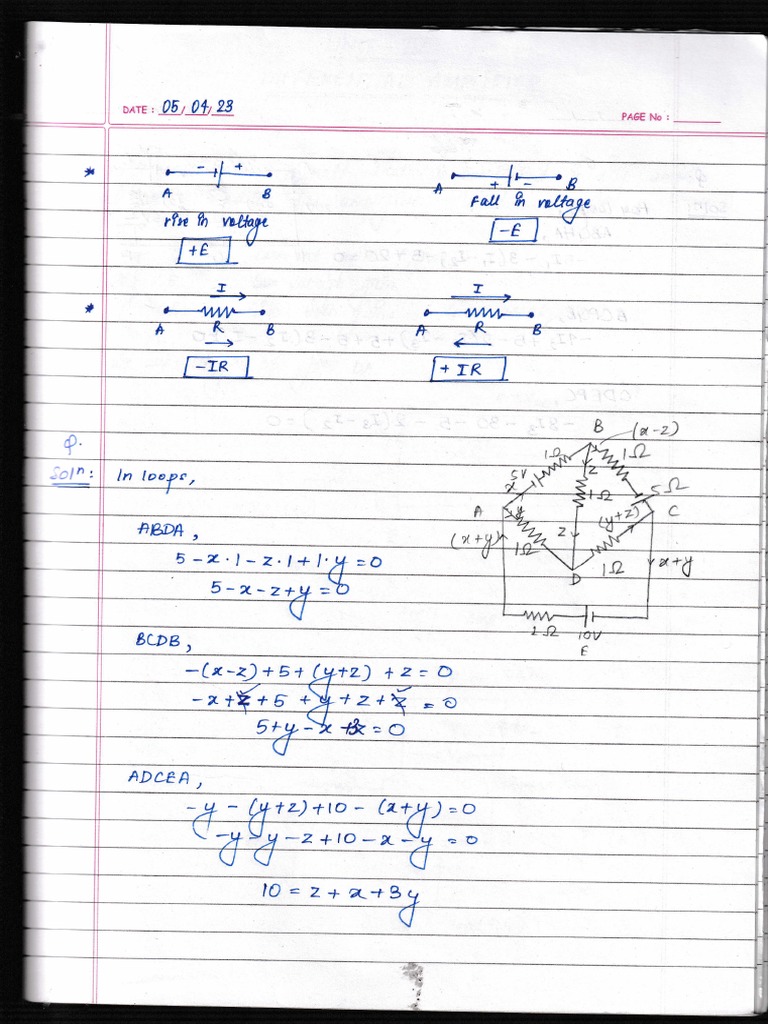 DATE : 05/04/23
PAGE No :
* - + - +
A B A B
rise in voltage Fall in voltage
+E -E
* I I
A R B A R B
-IR + IR
Q.
Solⁿ: In loops,
B (x-z)
1Ω 1Ω
5V x z 1Ω 5Ω
A y (y+z) C
(x+y) 1Ω z 1Ω x+y
D
1Ω 10V
E
ABDA,
5-x·1-z·1+1·y=0
5-x-z+y=0
BCDB,
-(x-z)+5+(y+z)+z=0
-x+z+5+y+z+z=0
5+y-x+3z=0
ADCEA,
-y-(y+z)+10-(x+y)=0
-y-y-z+10-x-y=0
10=z+x+3y